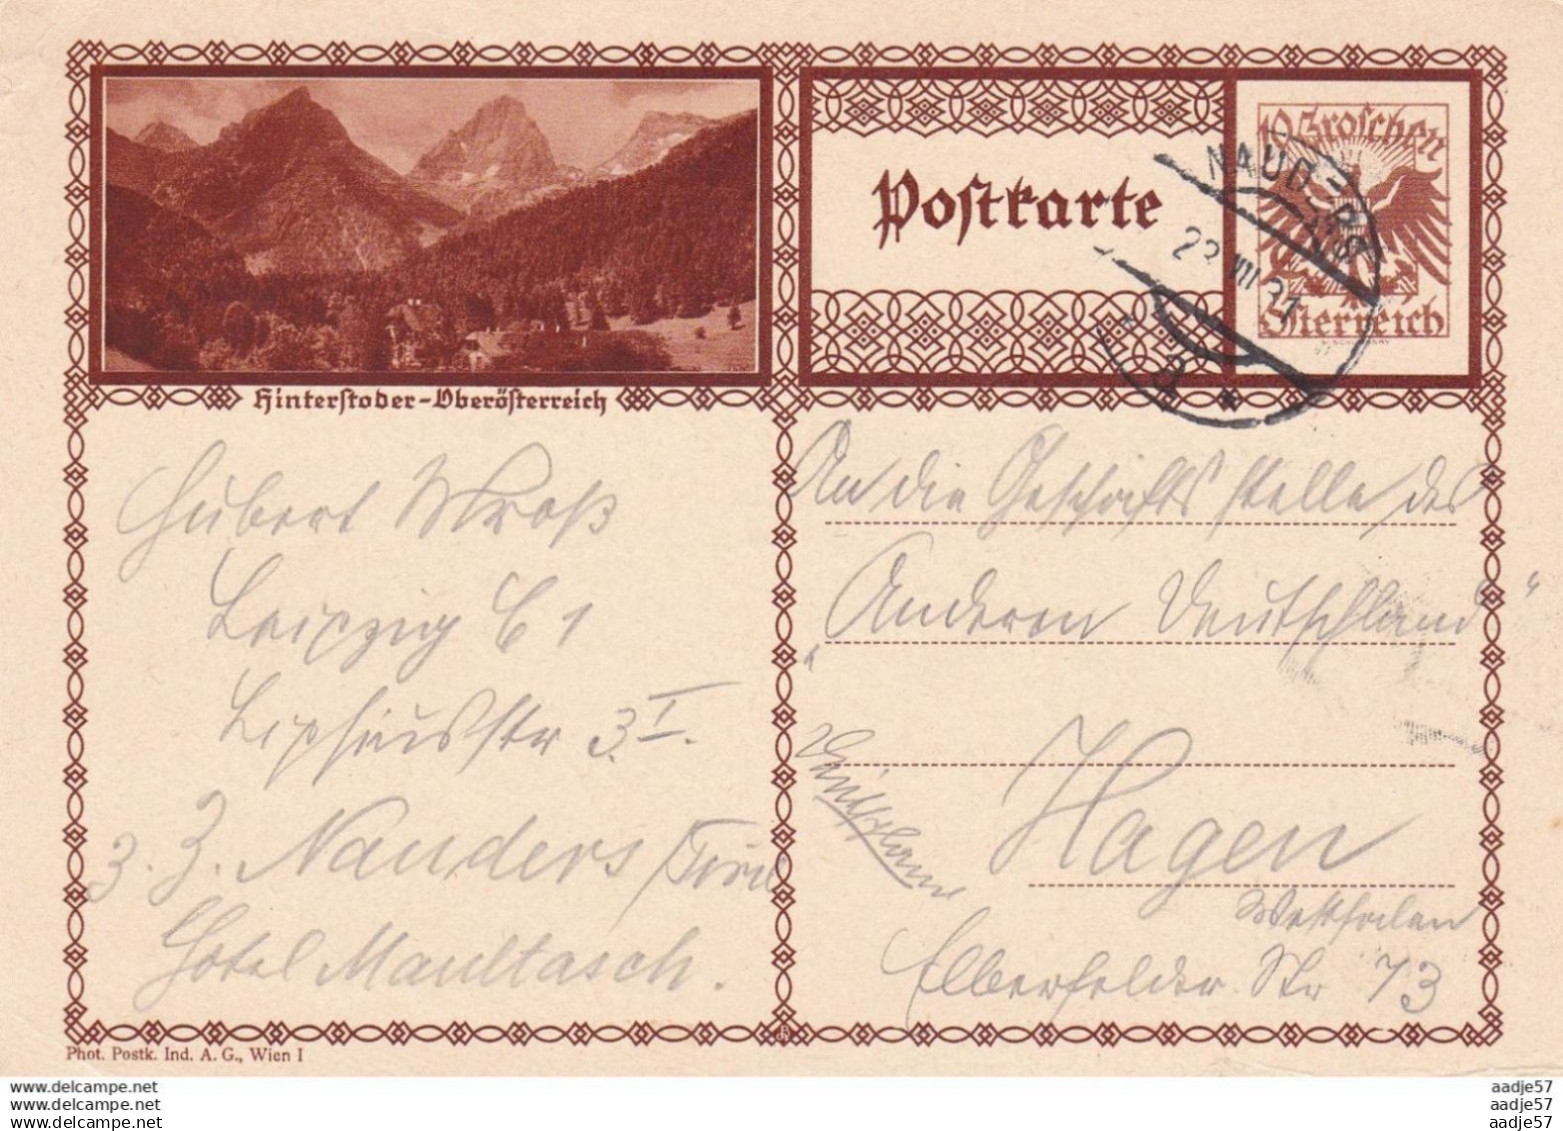 10 Groschen
Österreich
Postkarte
NAUDERS
22 VIII 31
Hinterstoder-Oberösterreich
Hubert
Leipzig C 1
str 3 I.
z. Z. Nauders /Tirol
Hotel Maultasch.
An die Geschäftsstelle des
„Anderen Deutschland"
Deutschland
Hagen
Westfalen
Elberfelder Str 73
Phot. Postk. Ind. A. G., Wien I
www.delcampe.net
www.delcampe.net
www.delcampe.net
aadje57
aadje57
aadje57